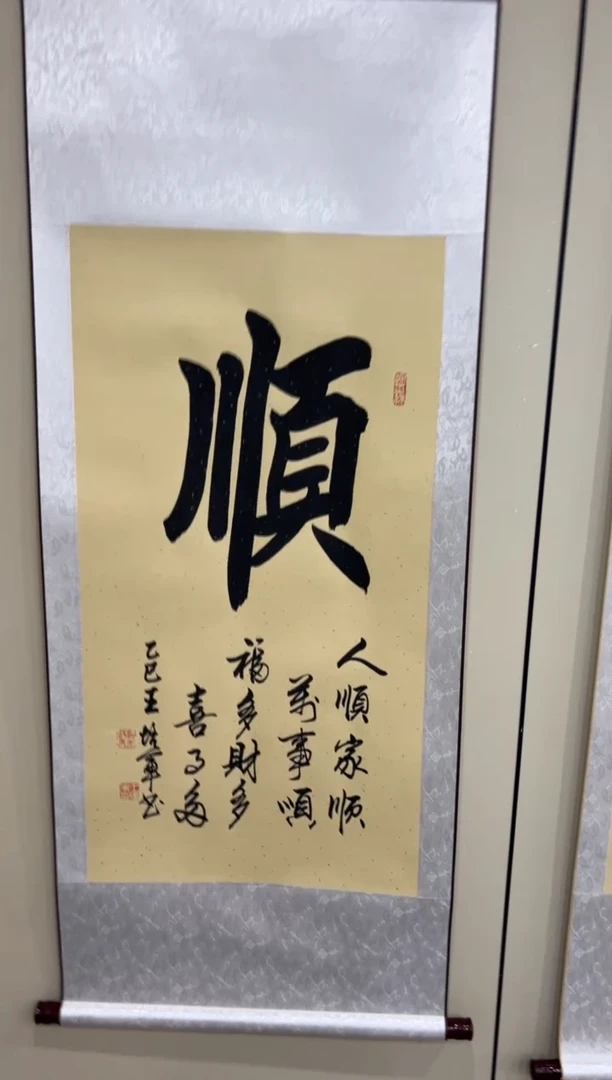 順
人順家顺
萬事順
福多財多
喜事多
乙巳王 軍书